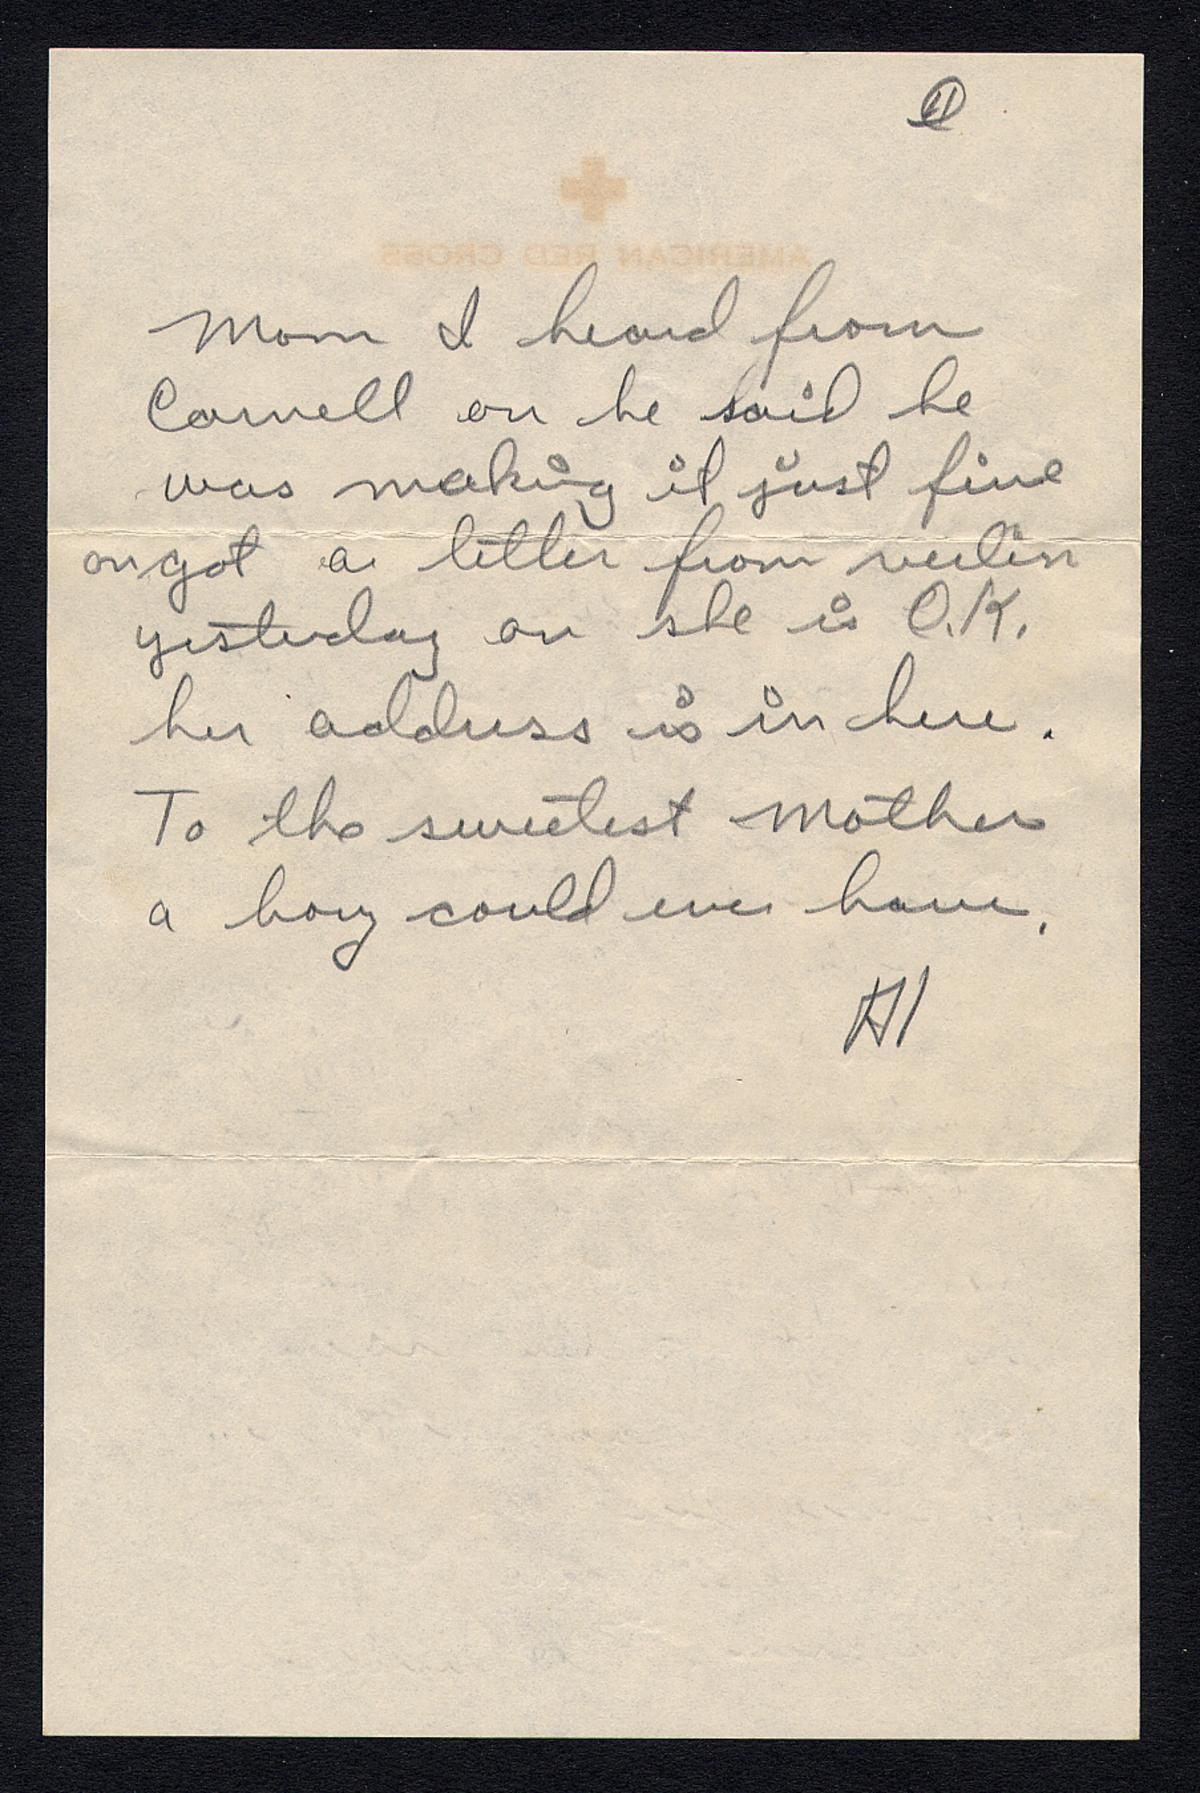 11
AMERICAN RED CROSS
Mom I heard from
Cornell on he said he
was making it just fine
on got a letter from verlin
yesterday on she is O.K.
her address is in here.
To the sweetest mother
a boy could ever have.
Al